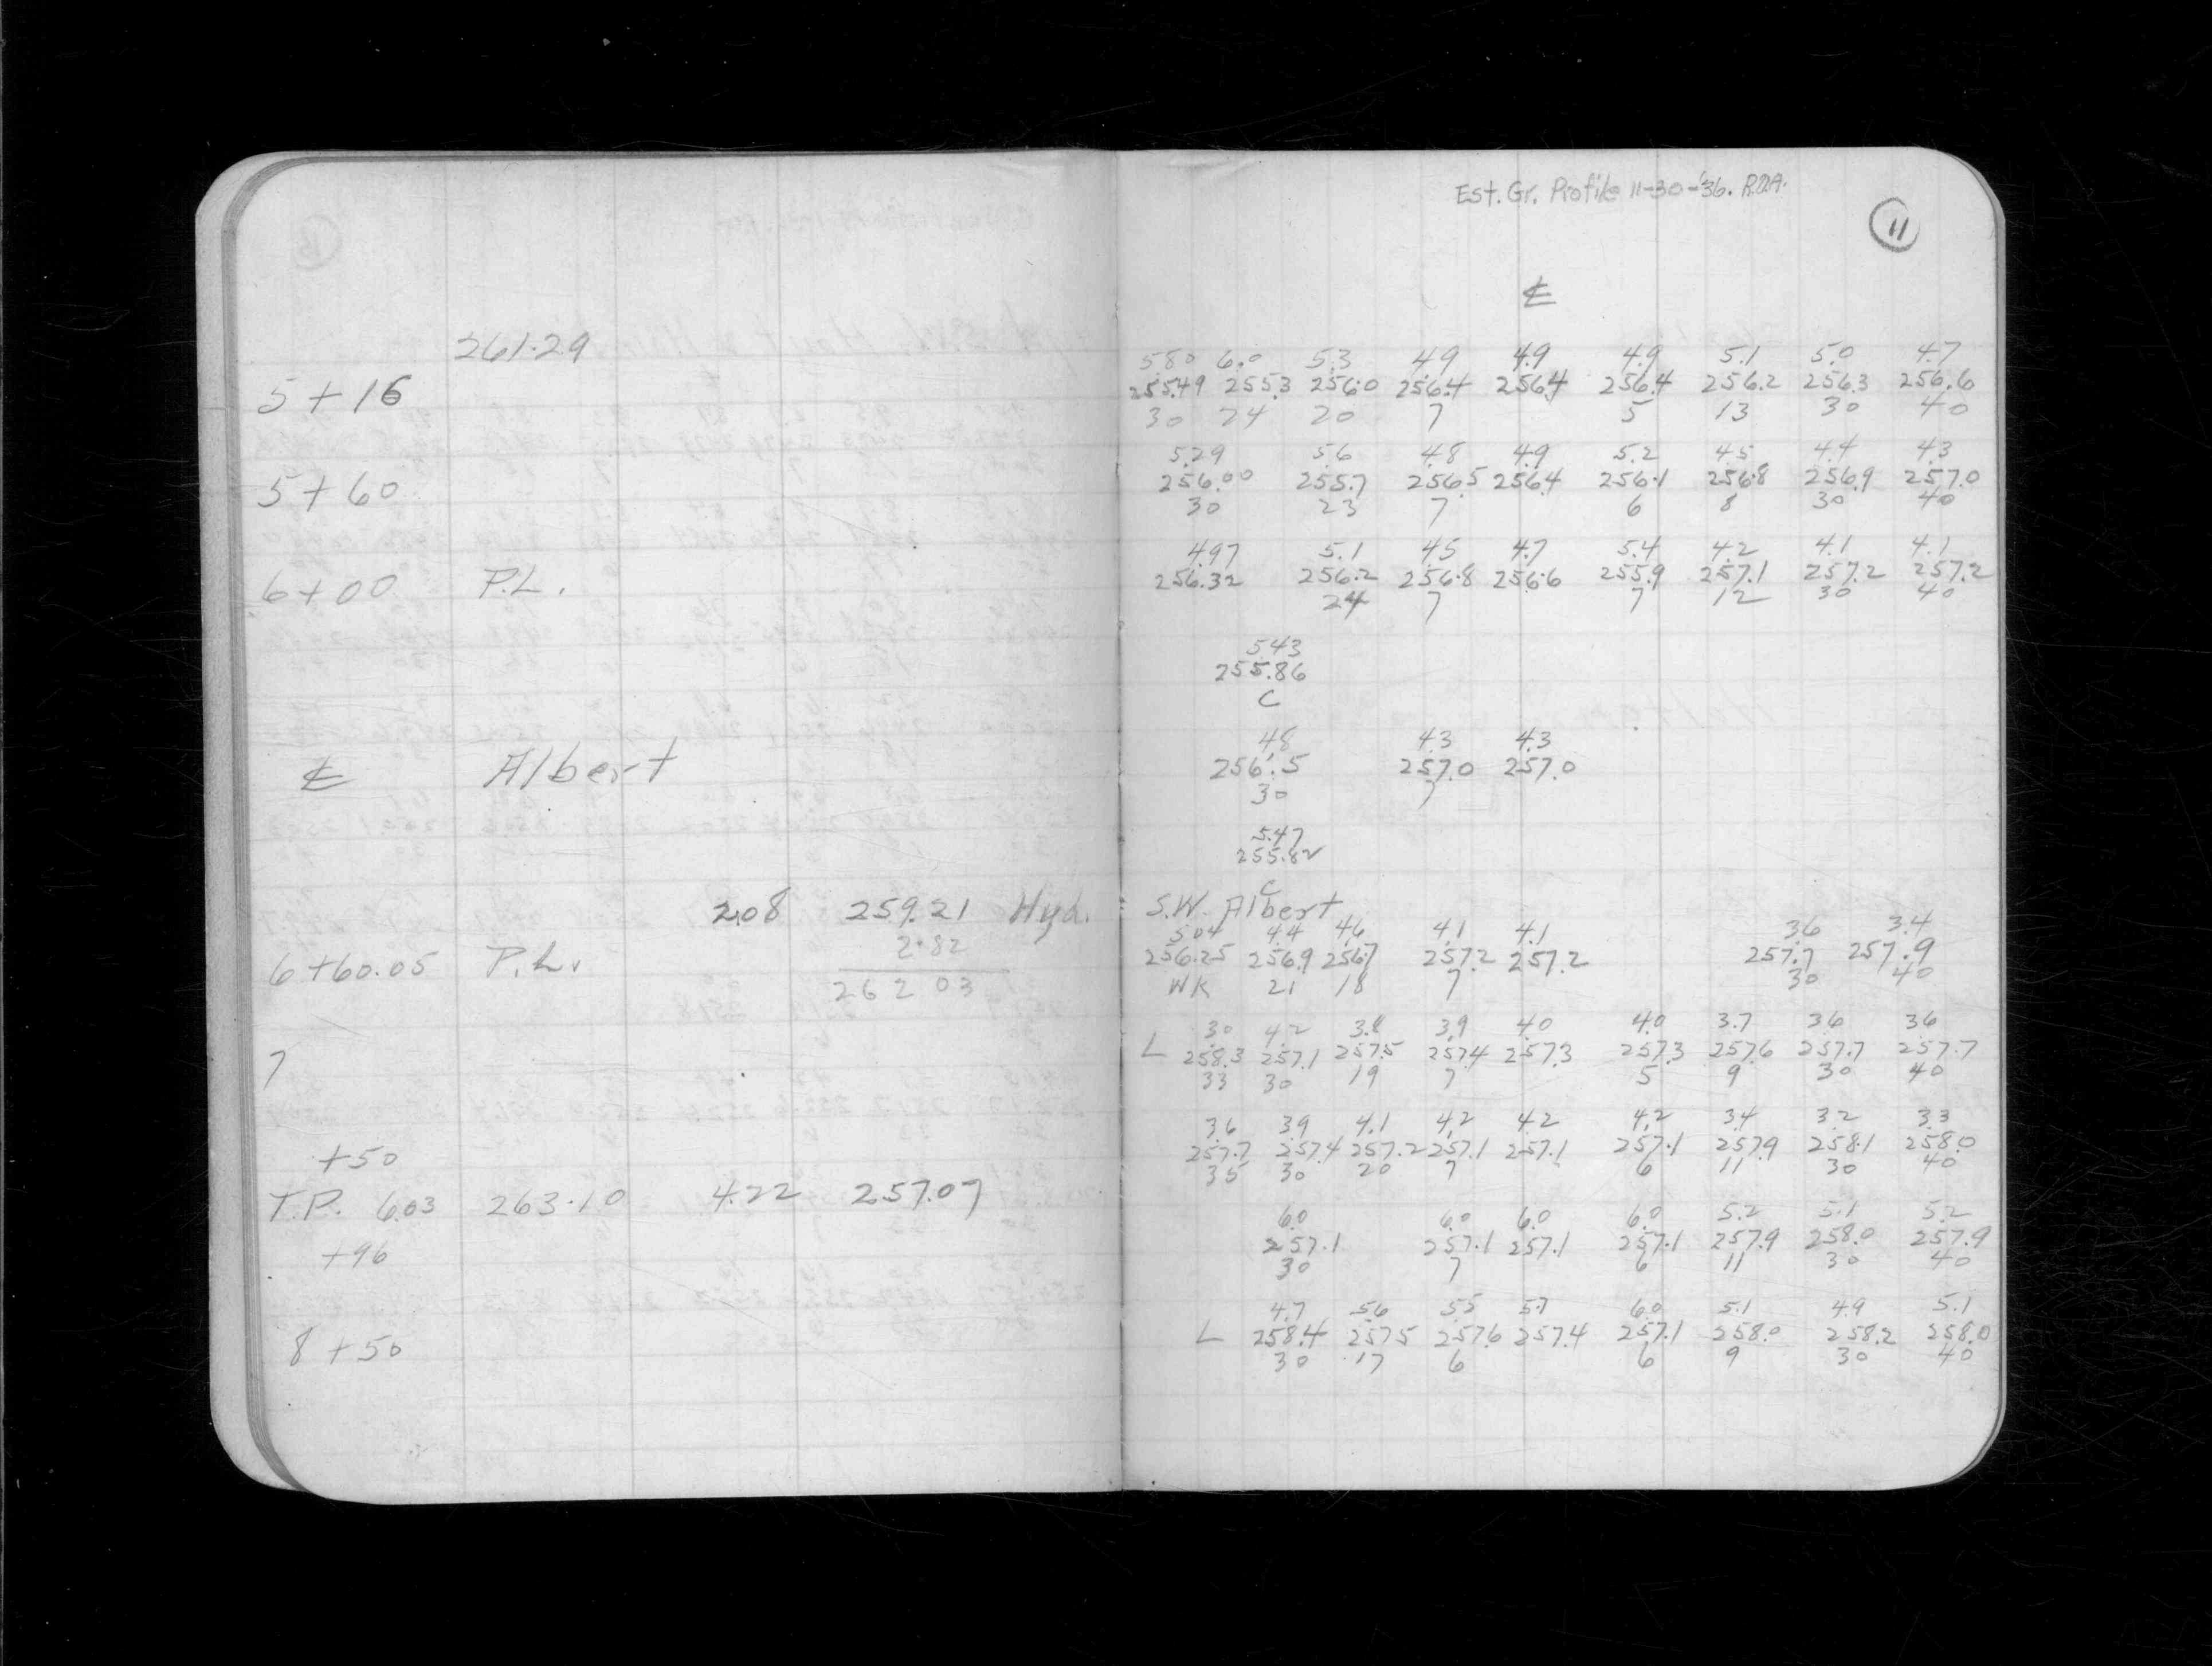 261.29
5+16
5+60
6+00 P.L.
℄ Albert
2.08 259.21 Hyd.
2.82
6+60.05 P.L.
262 03
7
+50
T.P. 6.03 263.10 4.22 257.07
+96
8+50
Est. Gr. Profile 11-30-'36. R.D.A.
11
℄
5.80 6.0 5.3 4.9 4.9 4.9 5.1 5.0 4.7
255.49 255.3 256.0 256.4 256.4 256.4 256.2 256.3 256.6
30 24 20 7 5 13 30 40
5.29 5.6 4.8 4.9 5.2 4.5 4.4 4.3
256.00 255.7 256.5 256.4 256.1 256.8 256.9 257.0
30 23 7 6 8 30 40
4.97 5.1 4.5 4.7 5.4 4.2 4.1 4.1
256.32 256.2 256.8 256.6 255.9 257.1 257.2 257.2
24 7 7 12 30 40
5.43
255.86
C
4.8 4.3 4.3
256.5 257.0 257.0
30 7
5.47
255.82
C
S.W. Albert
5.04 4.4 4.6 4.1 4.1 3.6 3.4
256.25 256.9 256.7 257.2 257.2 257.7 257.9
WK 21 18 7 30 40
3.0 4.2 3.8 3.9 4.0 4.0 3.7 3.6 3.6
L 258.3 257.1 257.5 257.4 257.3 257.3 257.6 257.7 257.7
33 30 19 7 5 9 30 40
3.6 3.9 4.1 4.2 4.2 4.2 3.4 3.2 3.3
257.7 257.4 257.2 257.1 257.1 257.1 257.9 258.1 258.0
35 30 20 7 6 11 30 40
6.0 6.0 6.0 6.0 5.2 5.1 5.2
257.1 257.1 257.1 257.1 257.9 258.0 257.9
30 7 6 11 30 40
4.7 5.6 5.5 5.7 6.0 5.1 4.9 5.1
L 258.4 257.5 257.6 257.4 257.1 258.0 258.2 258.0
30 17 6 6 9 30 40